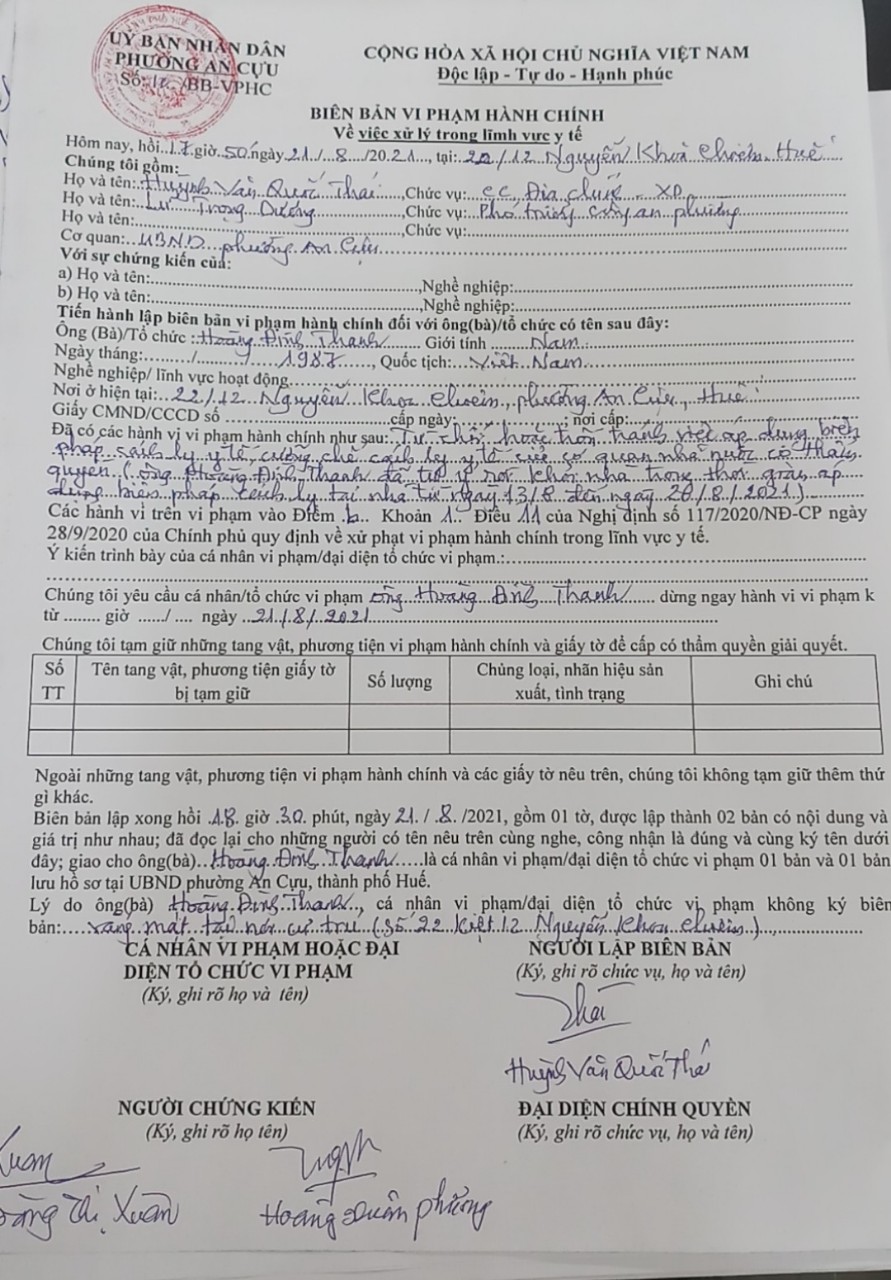 ỦY BAN NHÂN DÂN
PHƯỜNG AN CỰU
Số: 12 /BB-VPHC
CỘNG HÒA XÃ HỘI CHỦ NGHĨA VIỆT NAM
Độc lập - Tự do - Hạnh phúc
BIÊN BẢN VI PHẠM HÀNH CHÍNH
Về việc xử lý trong lĩnh vực y tế
Hôm nay, hồi 17 giờ 50 ngày 21 / 8 /2021, tại: 22/12 Nguyễn Khoa Chiêm Huế
Chúng tôi gồm:
Họ và tên: Huỳnh Văn Quốc Thái, Chức vụ: CC Địa chính - XD
Họ và tên: Lư Trọng Dương, Chức vụ: Phó trưởng công an phường
Họ và tên:, Chức vụ:
Cơ quan: UBND phường An Cựu
Với sự chứng kiến của:
a) Họ và tên:, Nghề nghiệp:
b) Họ và tên:, Nghề nghiệp:
Tiến hành lập biên bản vi phạm hành chính đối với ông(bà)/tổ chức có tên sau đây:
Ông (Bà)/Tổ chức : Hoàng Đình Thanh Giới tính Nam
Ngày tháng:....../....../1987, Quốc tịch: Việt Nam
Nghề nghiệp/ lĩnh vực hoạt động
Nơi ở hiện tại: 22/12 Nguyễn Khoa Chiêm, phường An Cựu, Huế
Giấy CMND/CCCD số cấp ngày: ; nơi cấp:
Đã có các hành vi vi phạm hành chính như sau: Từ chối hoặc trốn tránh việc áp dụng biện
pháp cách ly y tế, cưỡng chế cách ly y tế của cơ quan nhà nước có thẩm
quyền. (ông Hoàng Đình Thanh đã tự ý rời khỏi nhà trong thời gian áp
dụng biện pháp cách ly tại nhà từ ngày 13/8 đến ngày 26/8/2021)
Các hành vi trên vi phạm vào Điểm b Khoản 1 Điều 11 của Nghị định số 117/2020/NĐ-CP ngày
28/9/2020 của Chính phủ quy định về xử phạt vi phạm hành chính trong lĩnh vực y tế.
Ý kiến trình bày của cá nhân vi phạm/đại diện tổ chức vi phạm.:
Chúng tôi yêu cầu cá nhân/tổ chức vi phạm ông Hoàng Đình Thanh dừng ngay hành vi vi phạm k
từ ........ giờ ....../.... ngày 21/8/2021
Chúng tôi tạm giữ những tang vật, phương tiện vi phạm hành chính và giấy tờ để cấp có thẩm quyền giải quyết.
Số TT Tên tang vật, phương tiện giấy tờ bị tạm giữ Số lượng Chủng loại, nhãn hiệu sản xuất, tình trạng Ghi chú
Ngoài những tang vật, phương tiện vi phạm hành chính và các giấy tờ nêu trên, chúng tôi không tạm giữ thêm thứ
gì khác.
Biên bản lập xong hồi 18 giờ 30 phút, ngày 21 / 8 /2021, gồm 01 tờ, được lập thành 02 bản có nội dung và
giá trị như nhau; đã đọc lại cho những người có tên nêu trên cùng nghe, công nhận là đúng và cùng ký tên dưới
đây; giao cho ông(bà) Hoàng Đình Thanh là cá nhân vi phạm/đại diện tổ chức vi phạm 01 bản và 01 bản
lưu hồ sơ tại UBND phường An Cựu, thành phố Huế.
Lý do ông(bà) Hoàng Đình Thanh, cá nhân vi phạm/đại diện tổ chức vi phạm không ký biên
bản: vắng mặt tại nơi cư trú (Số 22 Kiệt 12 Nguyễn Khoa Chiêm)
CÁ NHÂN VI PHẠM HOẶC ĐẠI
DIỆN TỔ CHỨC VI PHẠM
(Ký, ghi rõ họ và tên)
NGƯỜI LẬP BIÊN BẢN
(Ký, ghi rõ chức vụ, họ và tên)
Thái
Huỳnh Văn Quốc Thái
NGƯỜI CHỨNG KIẾN
(Ký, ghi rõ họ tên)
ĐẠI DIỆN CHÍNH QUYỀN
(Ký, ghi rõ chức vụ, họ và tên)
Xuân
Thị Xuân
Hoàng Xuân Phương